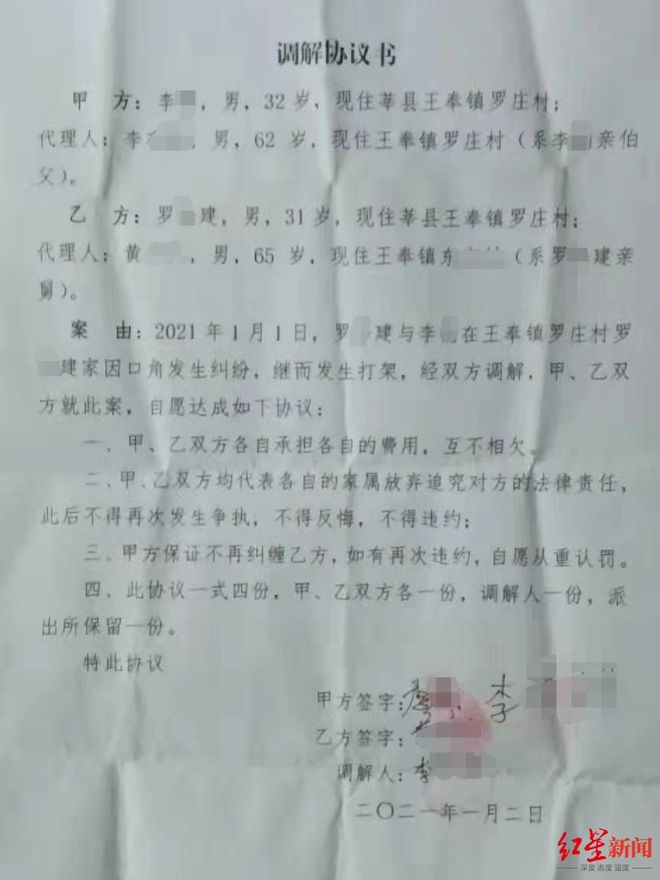 调解协议书
甲 方：李，男，32岁，现住莘县王奉镇罗庄村；
代理人：李，男，62岁，现住王奉镇罗庄村（系李亲伯
父）。
乙 方：罗建，男，31岁，现住莘县王奉镇罗庄村；
代理人：黄，男，65岁，现住王奉镇东（系罗建亲
舅）。
案 由：2021年1月1日，罗建与李在王奉镇罗庄村罗
建家因口角发生纠纷，继而发生打架，经双方调解，甲、乙双
方就此案，自愿达成如下协议：
一、甲、乙双方各自承担各自的费用，互不相欠。
二、甲、乙双方均代表各自的家属放弃追究对方的法律责任，
此后不得再次发生争执，不得反悔，不得违约；
三、甲方保证不再纠缠乙方，如有再次违约，自愿从重认罚。
四、此协议一式四份，甲、乙双方各一份，调解人一份，派
出所保留一份。
特此协议
甲方签字：李
乙方签字：
调解人：李
二〇二一年一月二日
红星新闻
深度 态度 温度